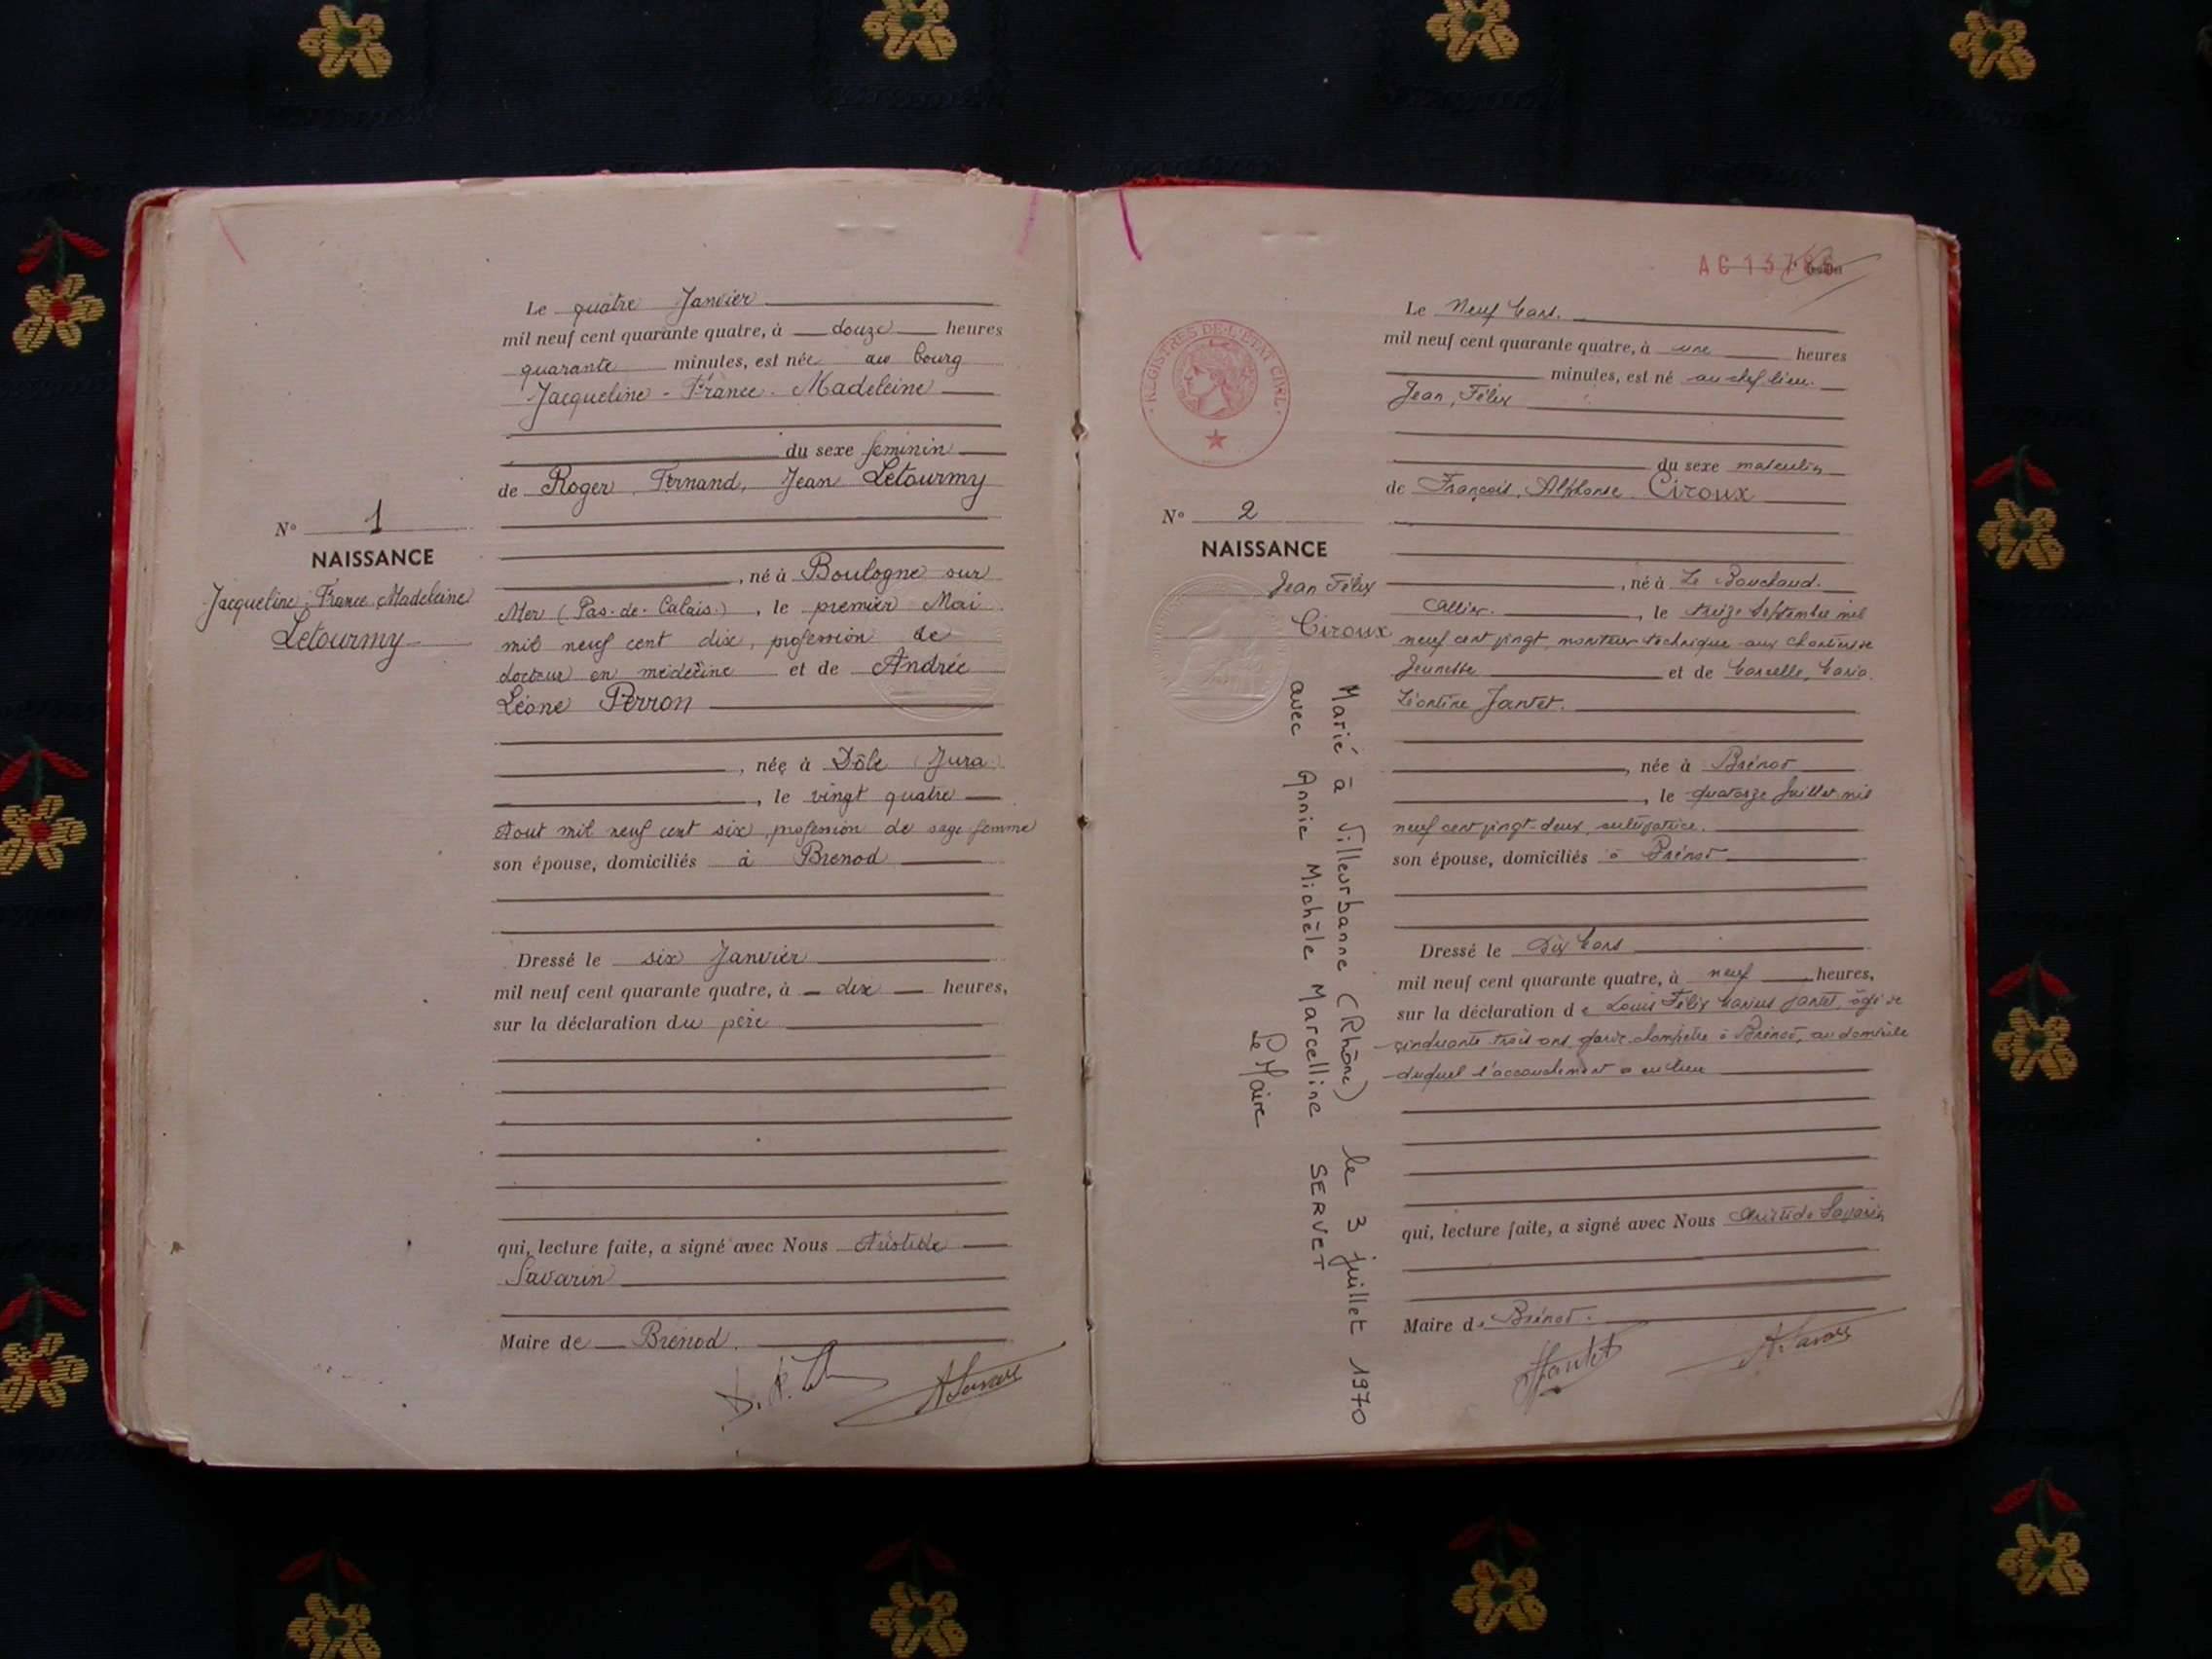 Le quatre Janvier
mil neuf cent quarante quatre, à douze heures
quarante minutes, est née au bourg
Jacqueline - France - Madeleine
du sexe feminin
de Roger, Fernand, Jean Letourmy
N° 1
NAISSANCE
Jacqueline France Madeleine
Letourmy
, né à Boulogne sur
Mer (Pas-de-Calais), le premier Mai
mil neuf cent dix, profession de
docteur en médecine et de Andrée
Léone Perron
, née à Dôle (Jura)
, le vingt quatre
Aout mil neuf cent six, profession de sage femme
son épouse, domiciliés à Brenod
Dressé le six Janvier
mil neuf cent quarante quatre, à dix heures,
sur la déclaration du père
qui, lecture faite, a signé avec Nous Aristide
Savarin
Maire de Brenod.
AC
REGISTRES DE L'ETAT CIVIL
Le Neuf Mars.
mil neuf cent quarante quatre, à une heures
minutes, est né au chef lieu.
Jean, Félix
du sexe masculin
de François, Alphonse Ciroux
N° 2
NAISSANCE
Jean Félix
Ciroux
, né à Le Bouchaud.
Allier. , le treize Septembre mil
neuf cent vingt, moniteur technique aux Chantiers de
Jeunesse et de Marcelle, Maria
Léontine Jantet.
, née à Brénod
, le quatorze Juillet mil
neuf cent vingt-deux, cultivatrice.
son épouse, domiciliés à Brénod
Dressé le Dix Mars
mil neuf cent quarante quatre, à neuf heures,
sur la déclaration de Louis Félix Marius Jantet, âgé de
cinquante trois ans, garde champêtre à Brénod, au domicile
duquel l'accouchement a eu lieu
qui, lecture faite, a signé avec Nous Aristide Savarin
Maire de Brénod.
Marié à Villeurbanne (Rhône) le 3 juillet 1970
avec Annie Michèle Marcelline SERVET
Le Maire